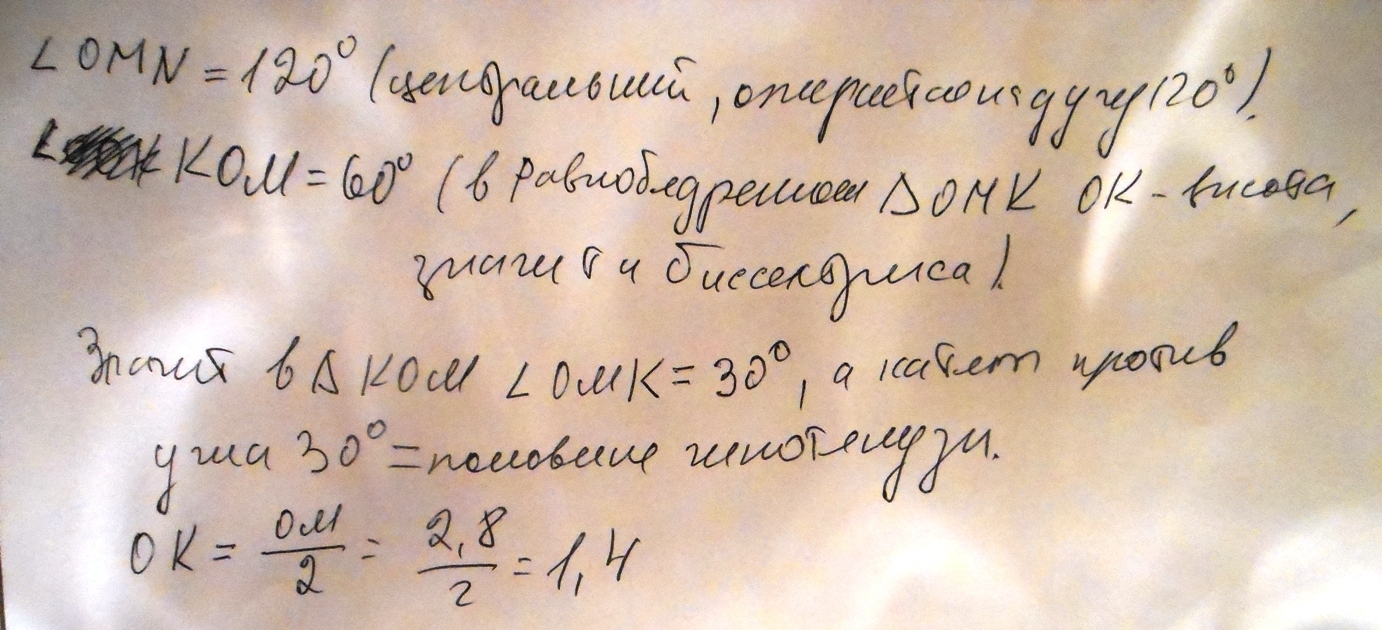 ∠OMN = 120° (центральный, опирается на дугу 120°).
∠ KOM = 60° (в равнобедренном △OMK OK - высота,
значит и биссектриса).
Значит в △ KOM ∠OMK = 30°, а катет против
угла 30° = половине гипотенузы.
OK = OM/2 = 2,8/2 = 1,4